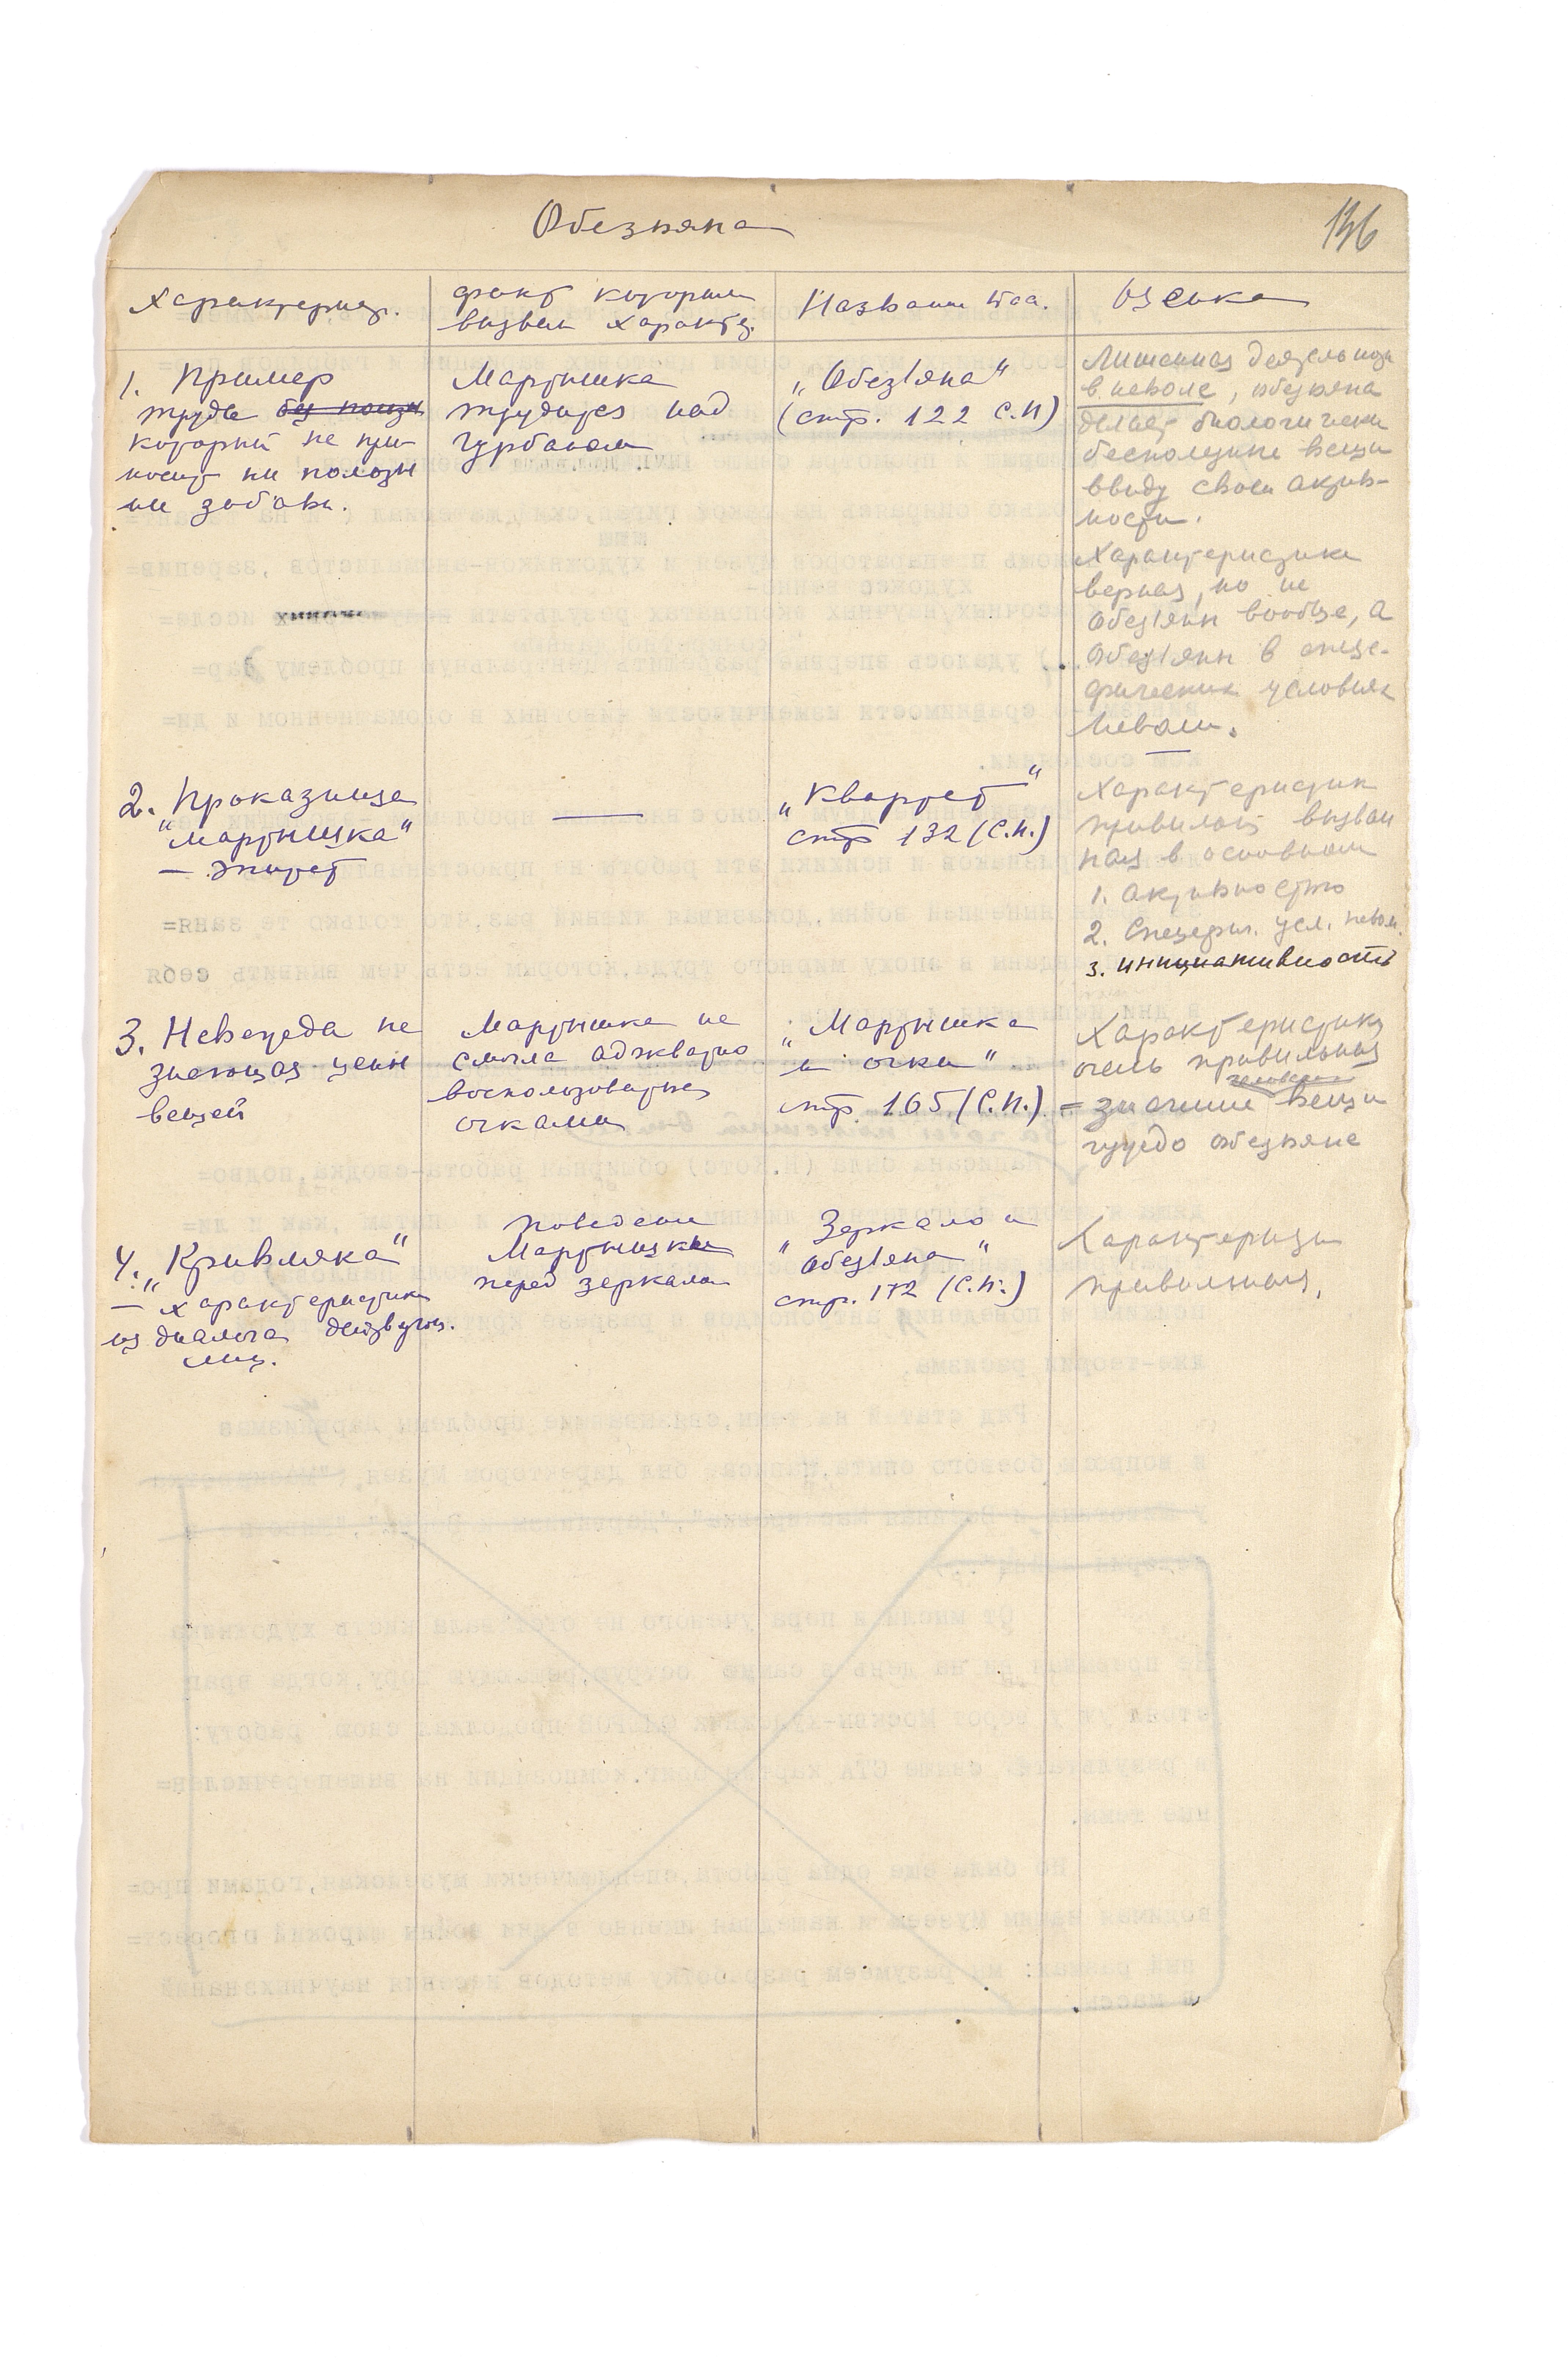 Обезьяна
136
Характериз.
факт который
вызвал характ.
Название
Оценка
1. Пример
труда без пользы
который не при-
носит ни пользы
ни забавы.
Мартышка
трудится над
чурбаном
„Обез'яна"
(стр. 122 С.П)
Лишенная деятельности
в неволе, обезьяна
делает биологически
бесполезные вещи
ввиду своей актив-
ности.
Характеристика
верная, но не
обез'яны вообще, а
обез'яны в специ-
фических условиях
неволи.
2. Проказница
"мартышка"
— эпитет
—
„Квартет"
стр 132 (С.П.)
Характеристик
правильная вызван
ная в основном
1. активностью
2. Специфич. усл. невол.
3. инициативность
3. Невежда не
знающая цены
вещей
Мартышка не
смогла адэкватно
воспользоваться
очками
„Мартышка
и очки"
стр. 165 (С.П.)
Характеристика
очень правильная
= значение вещи
чуждо обезьяне
4. „Кривляка"
— характеристика
из диалога действующ.
лиц.
Поведение
Мартышки
перед зеркалом
„Зеркало и
обез'яна"
стр. 172 (С.П.)
Характериз
правильная.